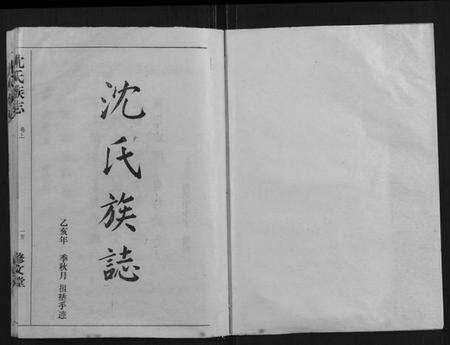 沈氏族誌
乙亥年 季秋月
沈氏族志
卷上
修文堂